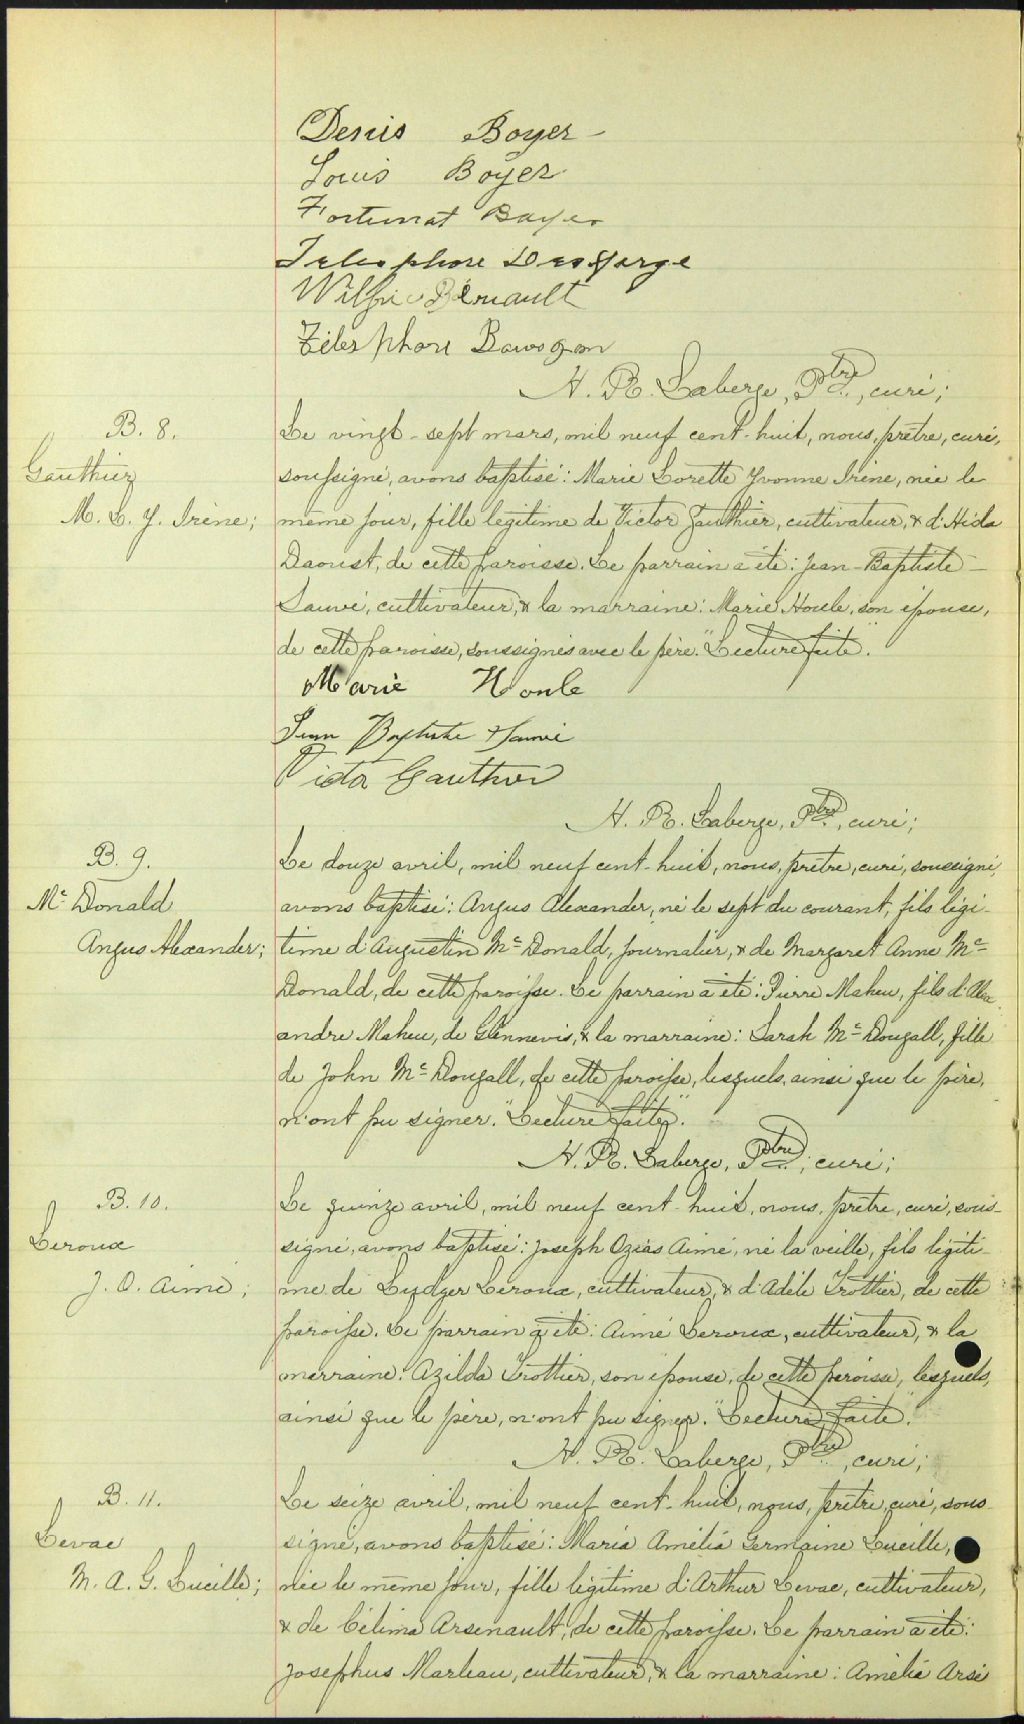 Denis Boyer
Louis Boyer
Fortunat Boyer
Wilfri Bénault
Télésphore
H. R. Laberge, Ptre, curé;
B. 8.
Gauthier
M. L. Y. Irène;
Le vingt-sept mars, mil neuf cent-huit, nous, prêtre, curé,
soussigné, avons baptisé: Marie Lorette Yvonne Irène, née le
même jour, fille légitime de Victor Gauthier, cultivateur, & d'Hida
Daoust, de cette paroisse. Le parrain a été: Jean-Baptiste
Sauvé, cultivateur, & la marraine: Marie Houle, son épouse,
de cette paroisse, soussignés avec le père. "Lecture faite".
Marie Houle
Jean Baptiste Sauvé
Victor Gauthier
H. R. Laberge, Ptre, curé;
B. 9.
Mc Donald
Angus Alexander;
Le douze avril, mil neuf cent-huit, nous, prêtre, curé, soussigné,
avons baptisé: Angus Alexander, né le sept du courant, fils légi-
time d'Augustin Mc Donald, journalier, & de Margaret Anne Mc
Donald, de cette paroisse. Le parrain a été: Pierre Maheu, fils d'Alex-
andre Maheu, de Glennevis, & la marraine: Sarah Mc Dougall, fille
de John Mc Dougall, de cette paroisse, lesquels, ainsi que le père,
n'ont pu signer. "Lecture faite".
H. R. Laberge, Ptre, curé;
B. 10.
Leroux
J. O. Aimé;
Le quinze avril, mil neuf cent-huit, nous, prêtre, curé, sous-
signé, avons baptisé: Joseph Ozias Aimé, né la veille, fils légiti-
me de Ludger Leroux, cultivateur, & d'Adèle Trottier, de cette
paroisse. Le parrain a été: Aimé Leroux, cultivateur, & la
marraine: Azilda Trottier, son épouse, de cette paroisse, lesquels,
ainsi que le père, n'ont pu signer. "Lecture faite".
H. R. Laberge, Ptre, curé;
B. 11.
Levac
M. A. G. Lucille;
Le seize avril, mil neuf cent-huit, nous, prêtre, curé, sous-
signé, avons baptisé: Maria Amélia Germaine Lucille,
née le même jour, fille légitime d'Arthur Levac, cultivateur,
& de Célima Arsenault, de cette paroisse. Le parrain a été:
Josephus Marleau, cultivateur, & la marraine: Amélia Arse